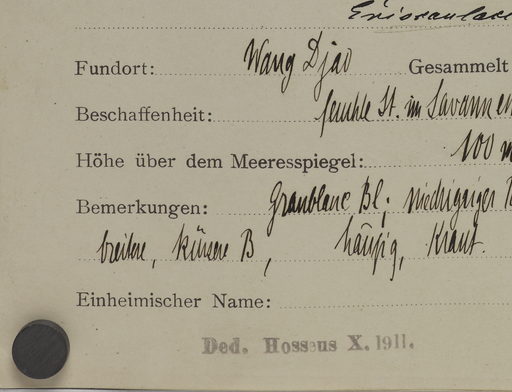 Fundort: Wang Djao Gesammelt
Beschaffenheit: feuchte St. im Savannen
Höhe über dem Meeresspiegel: 100 m
Bemerkungen: Graublaue Bl; niedrigiger
breitere, kürsere B, häufig, Kraut.
Einheimischer Name:
Ded. Hosseus X. 1911.